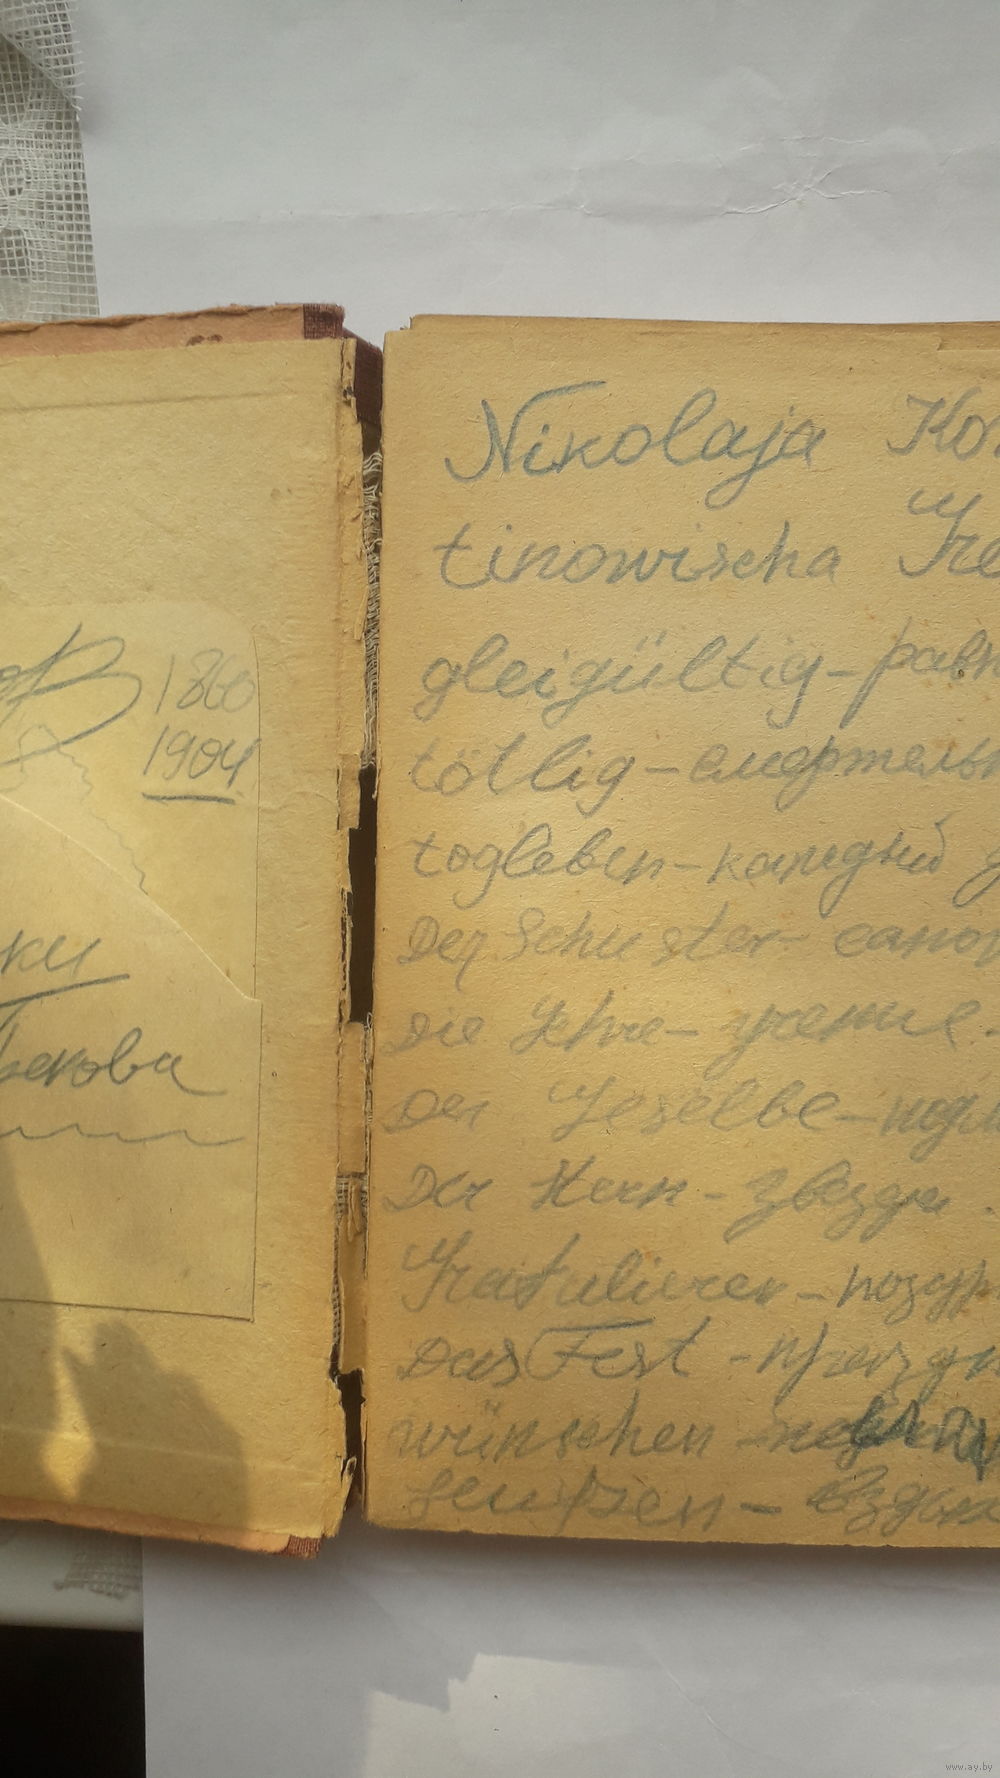 1860
1904
ки
Nikolaja Kon
tinowischa Gre
gleigültig - равн
tötlig - смертельн
togleben - каждый д
Der Schuster - сапож
die Lehre - учение.
Der Geselbe - подм
Der Stern - звезды.
Gratulieren - поздр
Das Fest - праздн
wünschen -
Seufzen - вздых
www.ay.by